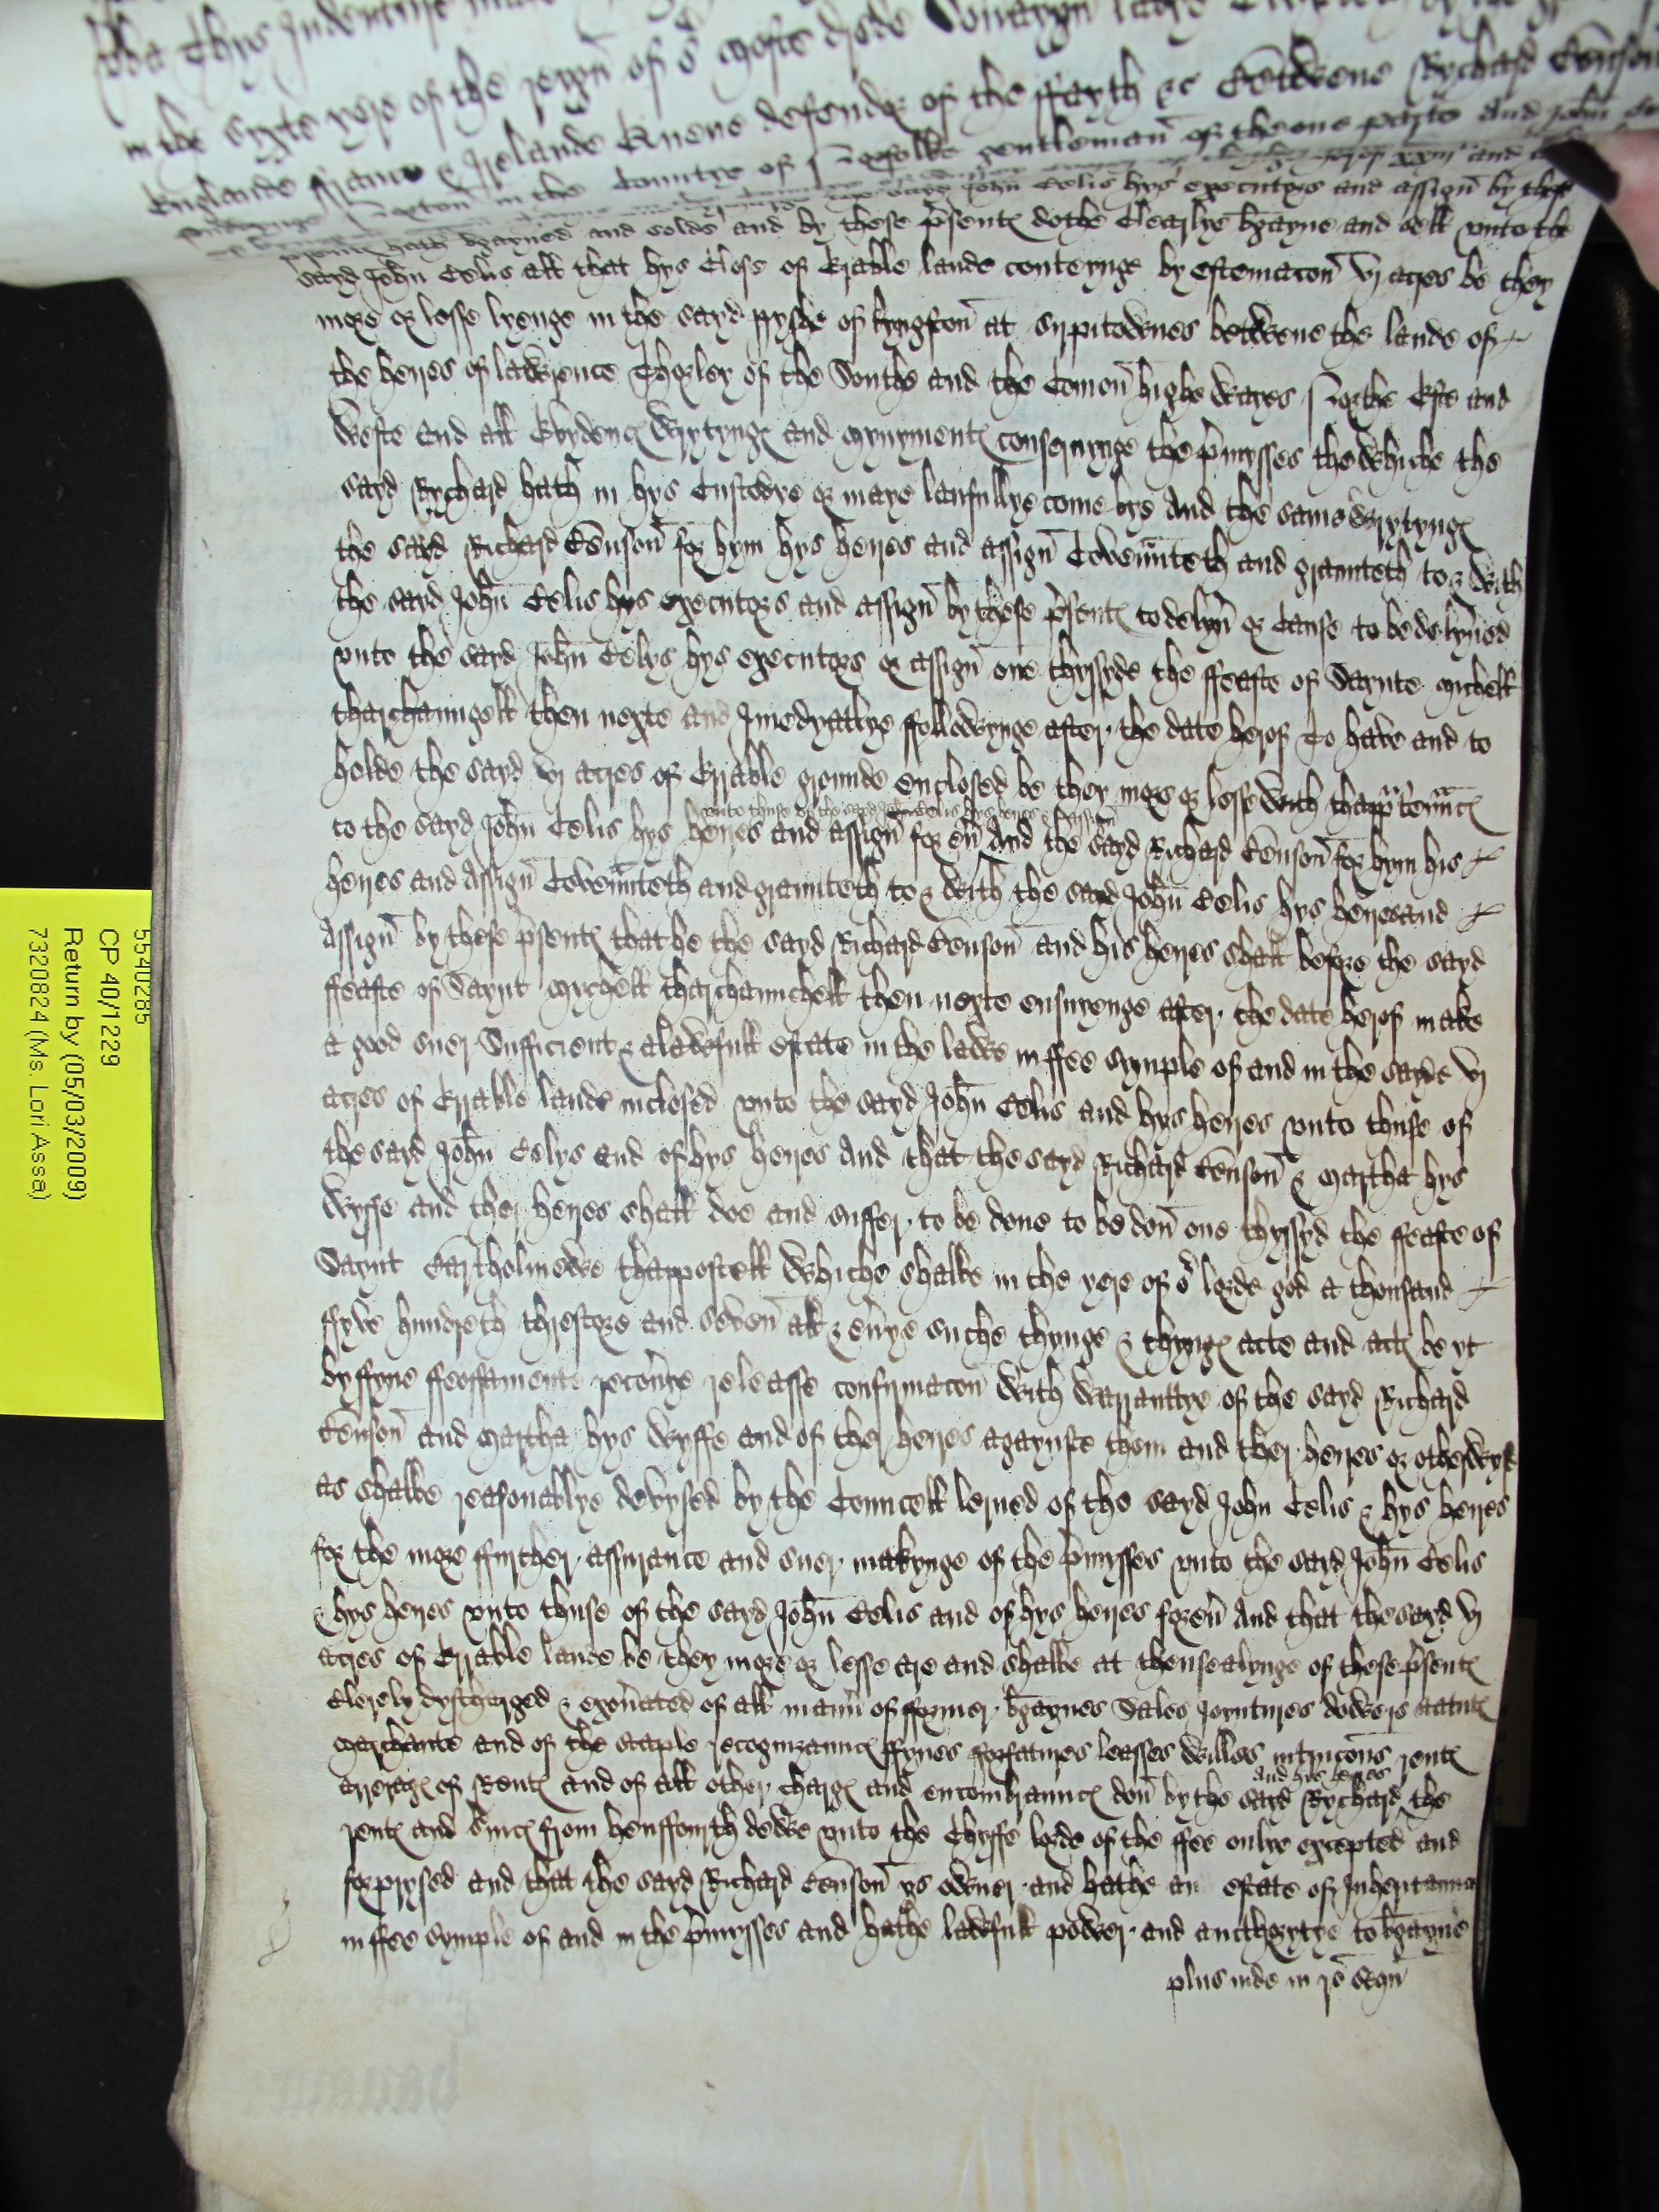 Thys Indenture
in the syxte yere of the reygn of oʳ moste drede Soueraygn lady
Englande ffrance & Irelande Quene defendoʳ of the ffayth &c Betwene Rychard Benson
in the Countye of Norffolke gentleman of the one parte And John
sayd John Celis hys executors and assigns by thes
presents hath bgayned and solde and by these p̄sents dothe Clearlye bgayne and sell vnto the
sayd John Celis all that hys Close of Erable lande conteynge by estemacon vj acres be they
more or lesse lyenge in the sayd pyshe of kyngston at Syrpitownes betwene the lande of
the heyres of lawrence Thorley of the Southe and the Comon highe wayes Northe Este and
Weste and all Evydencs Wrytyngs and mynyments consernynge the p̄myssess the whiche the
sayd Rychard hath in hys Custodye or maye laufullye come bye And the same wrytyngs
the sayd Richard Benson for hym hys heyres and assigns Covennteth and graunteth to & with
the sayd John Celis hys executors and assigns by these p̄sents to delyu̅ or Cause to be delyu̅ed
vnto the sayd John Celys hys executors or assigns one thyssyde the ffeaste of Saynte Michell
tharchaungell then nexte and Imedyatlye ffollowynge after the date herof To have and to
holde the sayd vj acres of Errable grounde enclosed be they more or lesse with thapp̄tennncs
vnto thuse of the sayd John Celis hys heyres & assigns
to the sayd John Celis hys heyres and assigns for eu̅ And the sayd Richard Benson for hym his
heyres and Assigns Covennteth and graunteth to & with the sayd John Celis hys heyres and
Assigns by these p̄sents that he the sayd Richard Benson and his heyres shall before the sayd
ffeaste of Saynt Mychell tharchaunchell then nexte ensuyenge after the date herof make
a good suer Sufficient & a lawfull estate in the lawe in ffee symple of and in the sayde vj
acres of Errable lande inclosed vnto the sayd John Celis and hys heyres vnto thuse of
the sayd John Celys and of hys heyres And that the sayd Richard Benson & Martha hys
wyffe and ther heyres shall doe and suffer to be done to be don one thyssyd the ffeaste of
Saynt Bartholmewe thappostell whiche shalbe in the yere of oʳ lorde god a thousand
ffyve hundreth threscore and seven all & eu̅ye suche thynge & thyngs acte and acts be yt
by ffyne ffeoffamente recou̅ye releasse confirmacon with warranttye of the sayd Richard
Benson and Martha hys wyffe and of ther heyres agaynste them and ther heyres or otherwyse
as shalbe reasonablye devysed by the Councell lerned of the sayd John Celis & hys heyres
for the more ffurther assurance and suer makynge of the p̄mysses vnto the sayd John Celis
& hys heyres vnto thuse of the sayd John Celis and of hys heyres for eu̅ And that the sayd vj
acres of Errable lande be they more or lesse are and shalbe at thensealynge of these p̄sents
Clerely dyscharged & exon̅ated of all mann̅ of fformer bgaynes Sales Joyntures dowers statuts
marchante and of the staple recognizanncs ffynes forfatures leasses willes intrucons rents
arrerags of Rents and of all other chargs and encombranncs don by the sayd Rychard and hys heyres the
rents and su̅ics from hensffourth dewe vnto the Chyffe lorde of the ffee onlye excepted and
forprysed and that the sayd Richard Benson ys owner and hathe an estate of Inheritannce
in ffee symple of and in the p̄mysses and hathe lawfull power and aucthorytye to bgayne
plus inde in ro seqn
5540285
CP 40/1229
Return by (05/03/2009)
7320824 (Ms. Lori Assa)